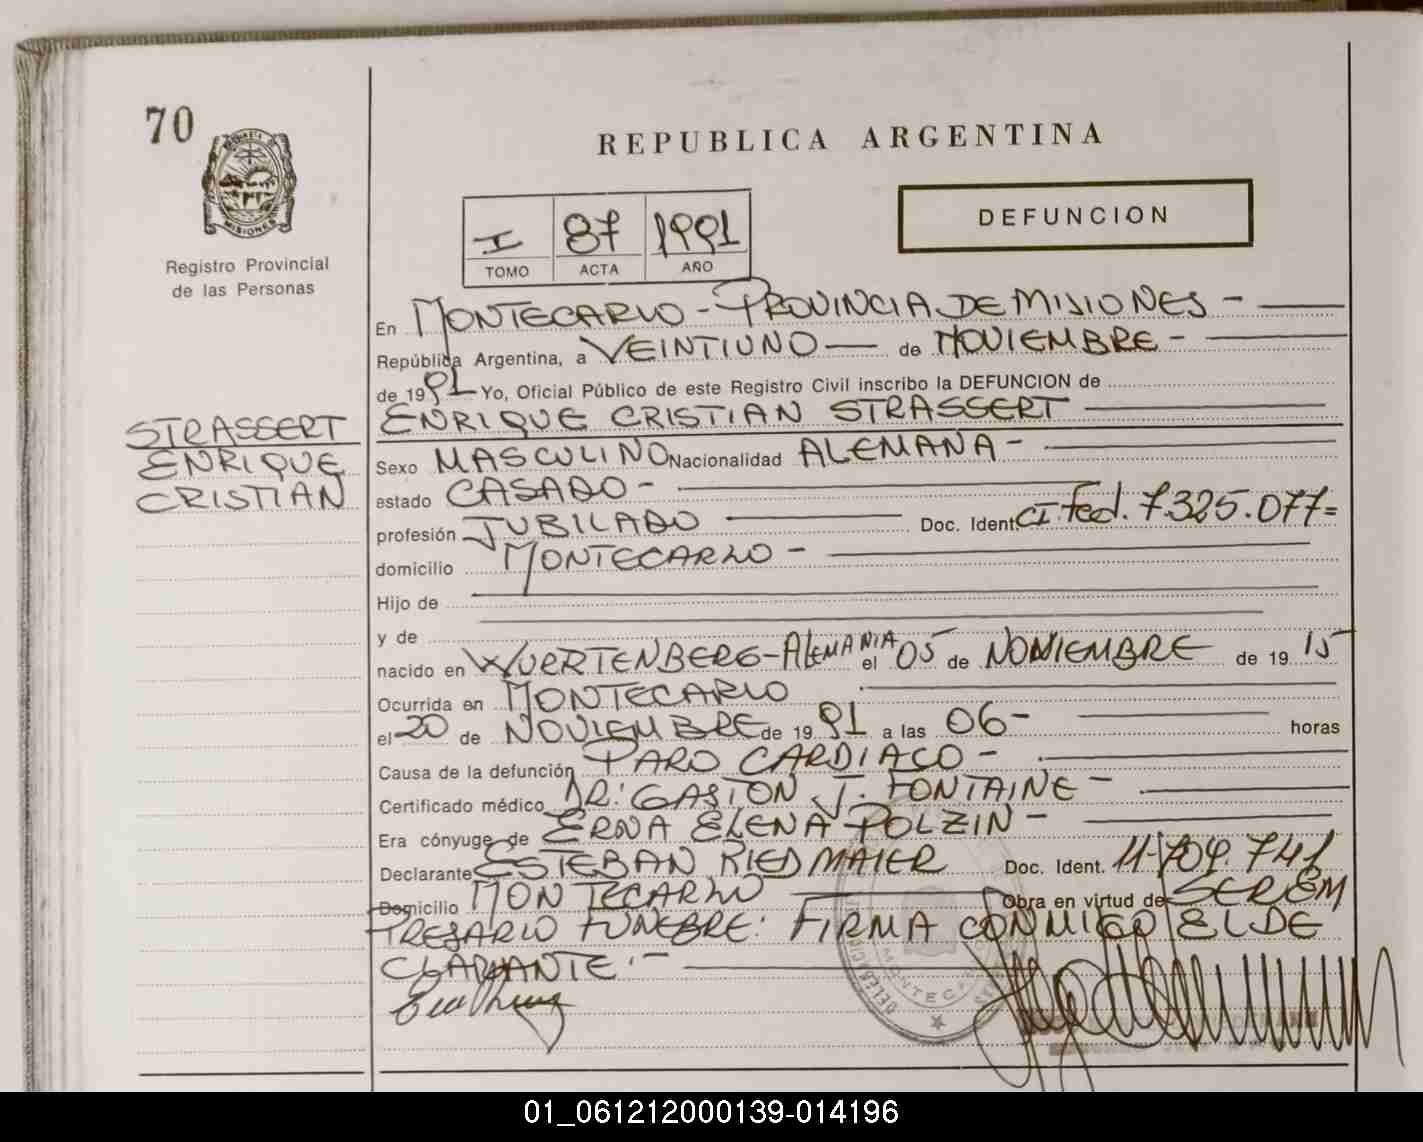 70
REPUBLICA ARGENTINA
DEFUNCION
MISIONES
Registro Provincial
de las Personas
I 87 1991
TOMO ACTA AÑO
En MONTECARLO - PROVINCIA DE MISIONES -
República Argentina, a VEINTIUNO — de NOVIEMBRE -
de 1991 Yo, Oficial Público de este Registro Civil inscribo la DEFUNCION de
ENRIQUE CRISTIAN STRASSERT
STRASSERT
ENRIQUE
CRISTIAN
Sexo MASCULINO Nacionalidad ALEMANA -
estado CASADO -
profesión JUBILADO Doc. Ident. CI Fed. 7.325.077=
domicilio MONTECARLO -
Hijo de
y de
nacido en WUERTENBERG-ALEMANIA el 05 de NOVIEMBRE de 1915
Ocurrida en MONTECARLO
el 20 de NOVIEMBRE de 1991 a las 06- horas
Causa de la defunción PARO CARDIACO -
Certificado médico DR: GASTON J. FONTAINE -
Era cónyuge de ERNA ELENA POLZIN -
Declarante ESTEBAN RIEDMAIER Doc. Ident. 11.709.741
Domicilio MONTECARLO Obra en virtud de SER EM
PRESARIO FUNEBRE: FIRMA CONMIGO EL DE
CLARANTE.-
MONTECARLO
01_061212000139-014196